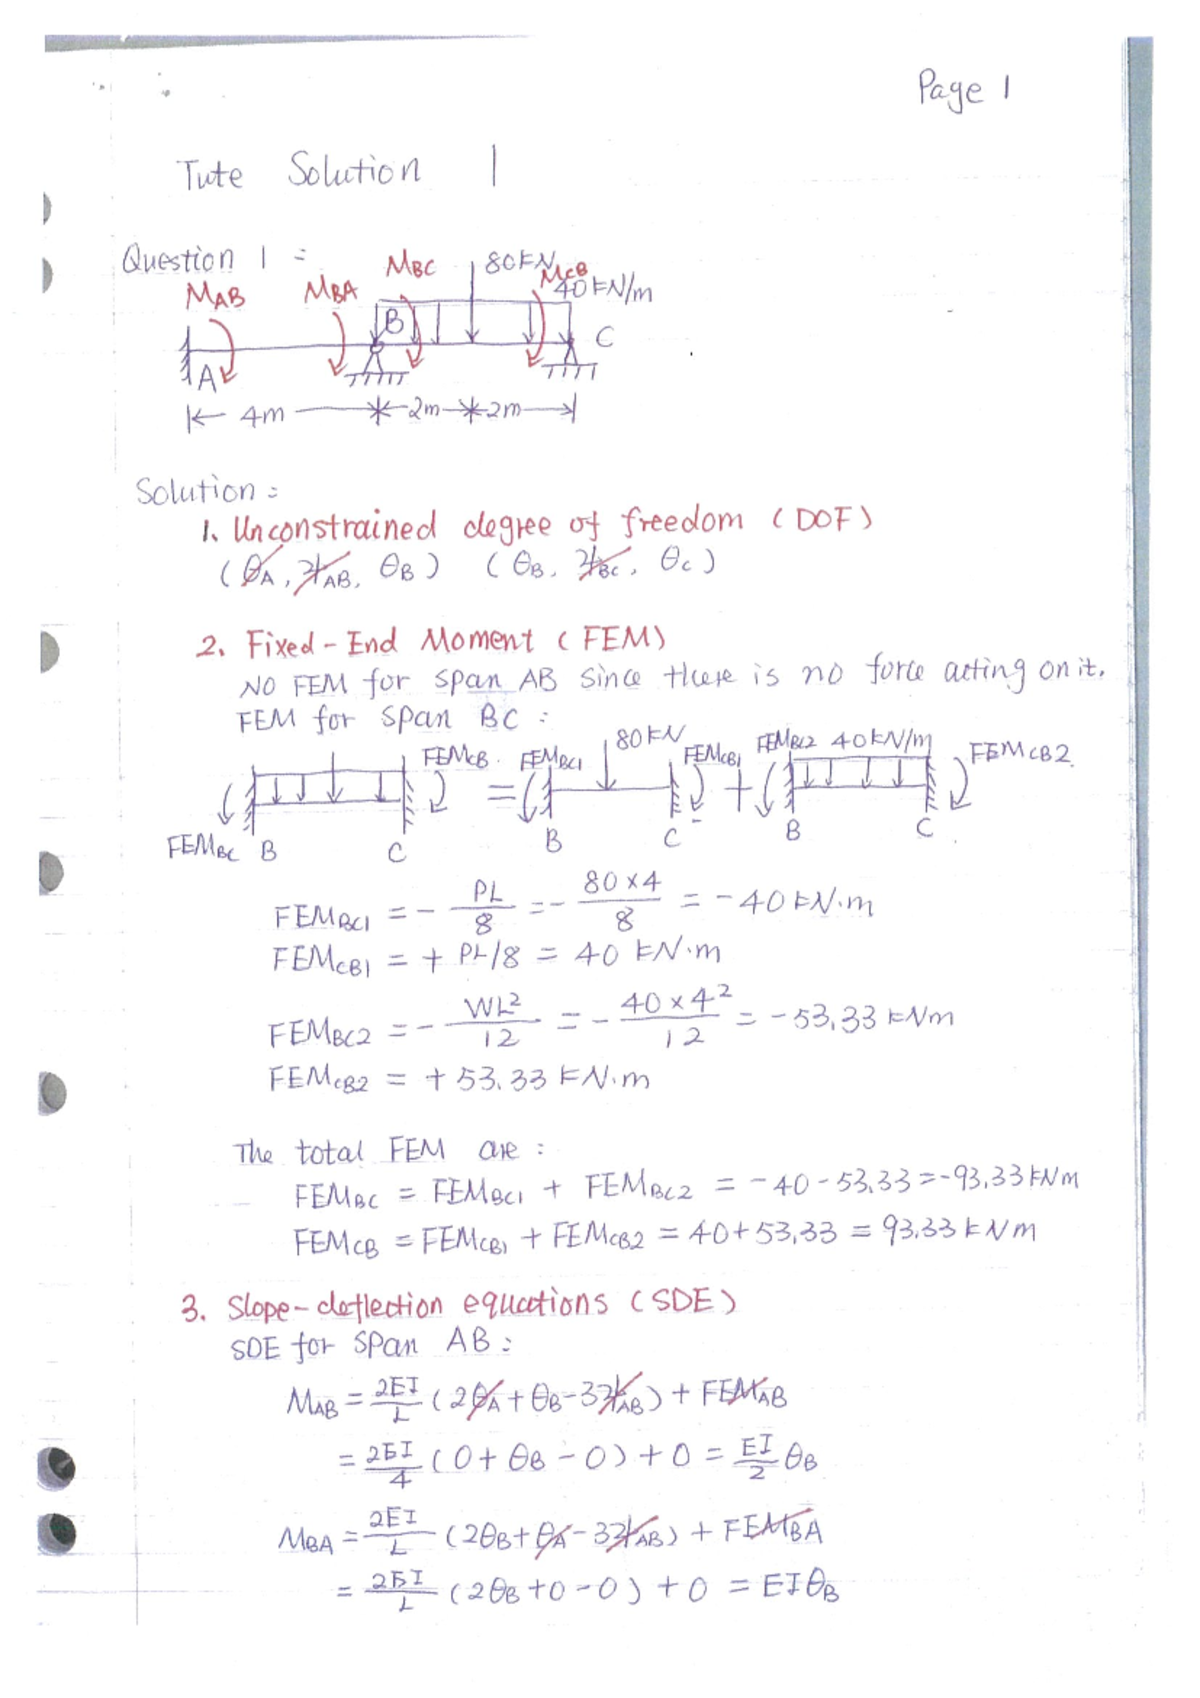 Page 1
Tute Solution 1
Question 1 :
MAB MBA MBC 80 kN MCB 40 kN/m
A B C
4m 2m 2m
Solution :
1. Unconstrained degree of freedom (DOF)
(θA, ψAB, θB) (θB, ψBC, θC)
2. Fixed-End Moment (FEM)
NO FEM for span AB since there is no force acting on it.
FEM for span BC :
FEMCB FEMBC1 80 kN FEMCB1 FEMBC2 40 kN/m FEMCB2
= +
FEMBC B C B C B C
FEMBC1 = - PL/8 = - 80×4/8 = -40 kN·m
FEMCB1 = + PL/8 = 40 kN·m
FEMBC2 = - WL²/12 = - 40×4²/12 = -53.33 kNm
FEMCB2 = +53.33 kN·m
The total FEM are :
FEMBC = FEMBC1 + FEMBC2 = -40-53.33 = -93.33 kNm
FEMCB = FEMCB1 + FEMCB2 = 40+53.33 = 93.33 kNm
3. Slope-deflection equations (SDE)
SDE for span AB :
MAB = 2EI/L (2θA + θB - 3ψAB) + FEMAB
= 2EI/4 (0 + θB - 0) + 0 = EI/2 θB
MBA = 2EI/L (2θB + θA - 3ψAB) + FEMBA
= 2EI/L (2θB + 0 - 0) + 0 = EIθB